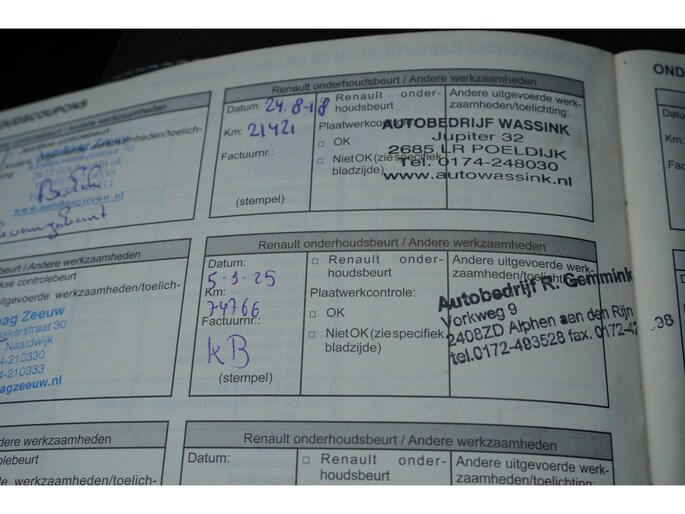 OUDSCOUPONS
OND
beurt / Andere werkzaamheden
controlebeurt
werkzaamheden/toelich-
www.autohaagzeeuw.nl
Renault onderhoudsbeurt / Andere werkzaamheden
Datum: 24.8-18
Km: 21421
Factuurnr.:
(stempel)
□ Renault onder-
houdsbeurt
Plaatwerkcontrole:
□ OK
□ Niet OK (zie specifiek
bladzijde)
Andere uitgevoerde werk-
zaamheden/toelichting:
AUTOBEDRIJF WASSINK
Jupiter 32
2685 LR POELDIJK
Tel. 0174-248030
www.autowassink.nl
beurt / Andere werkzaamheden
kse controlebeurt
uitgevoerde werkzaamheden/toelich-
aag Zeeuw
akerstraat 30
Naaldwijk
4-210330
4-210333
aagzeeuw.nl
Renault onderhoudsbeurt / Andere werkzaamheden
Datum:
5-3-25
Km:
74766
Factuurnr.:
KB
(stempel)
□ Renault onder-
houdsbeurt
Plaatwerkcontrole:
□ OK
□ Niet OK (zie specifiek
bladzijde)
Andere uitgevoerde werk-
zaamheden/toelichting:
Autobedrijf R. Gemmink
Vorkweg 9
2408ZD Alphen aan den Rijn
tel.0172-493528 fax. 0172-42
38
dere werkzaamheden
olebeurt
de werkzaamheden/toelich-
Renault onderhoudsbeurt / Andere werkzaamheden
Datum:
□ Renault onder-
houdsbeurt
Andere uitgevoerde werk-
zaamheden/toelichting: